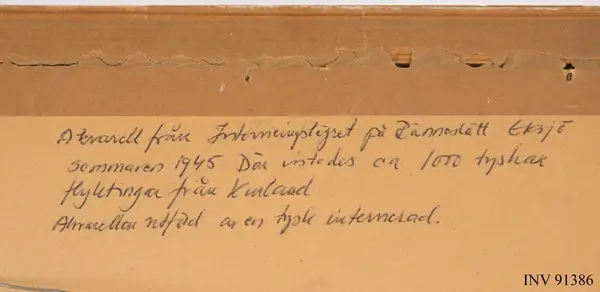 Akvarell från Interneringslägret på Ränneslätt Eksjö
sommaren 1945 Där vistades ca 1000 tyskar
flyktingar från Kurland
Akvarellen utförd av en tysk internerad.
INV 91386